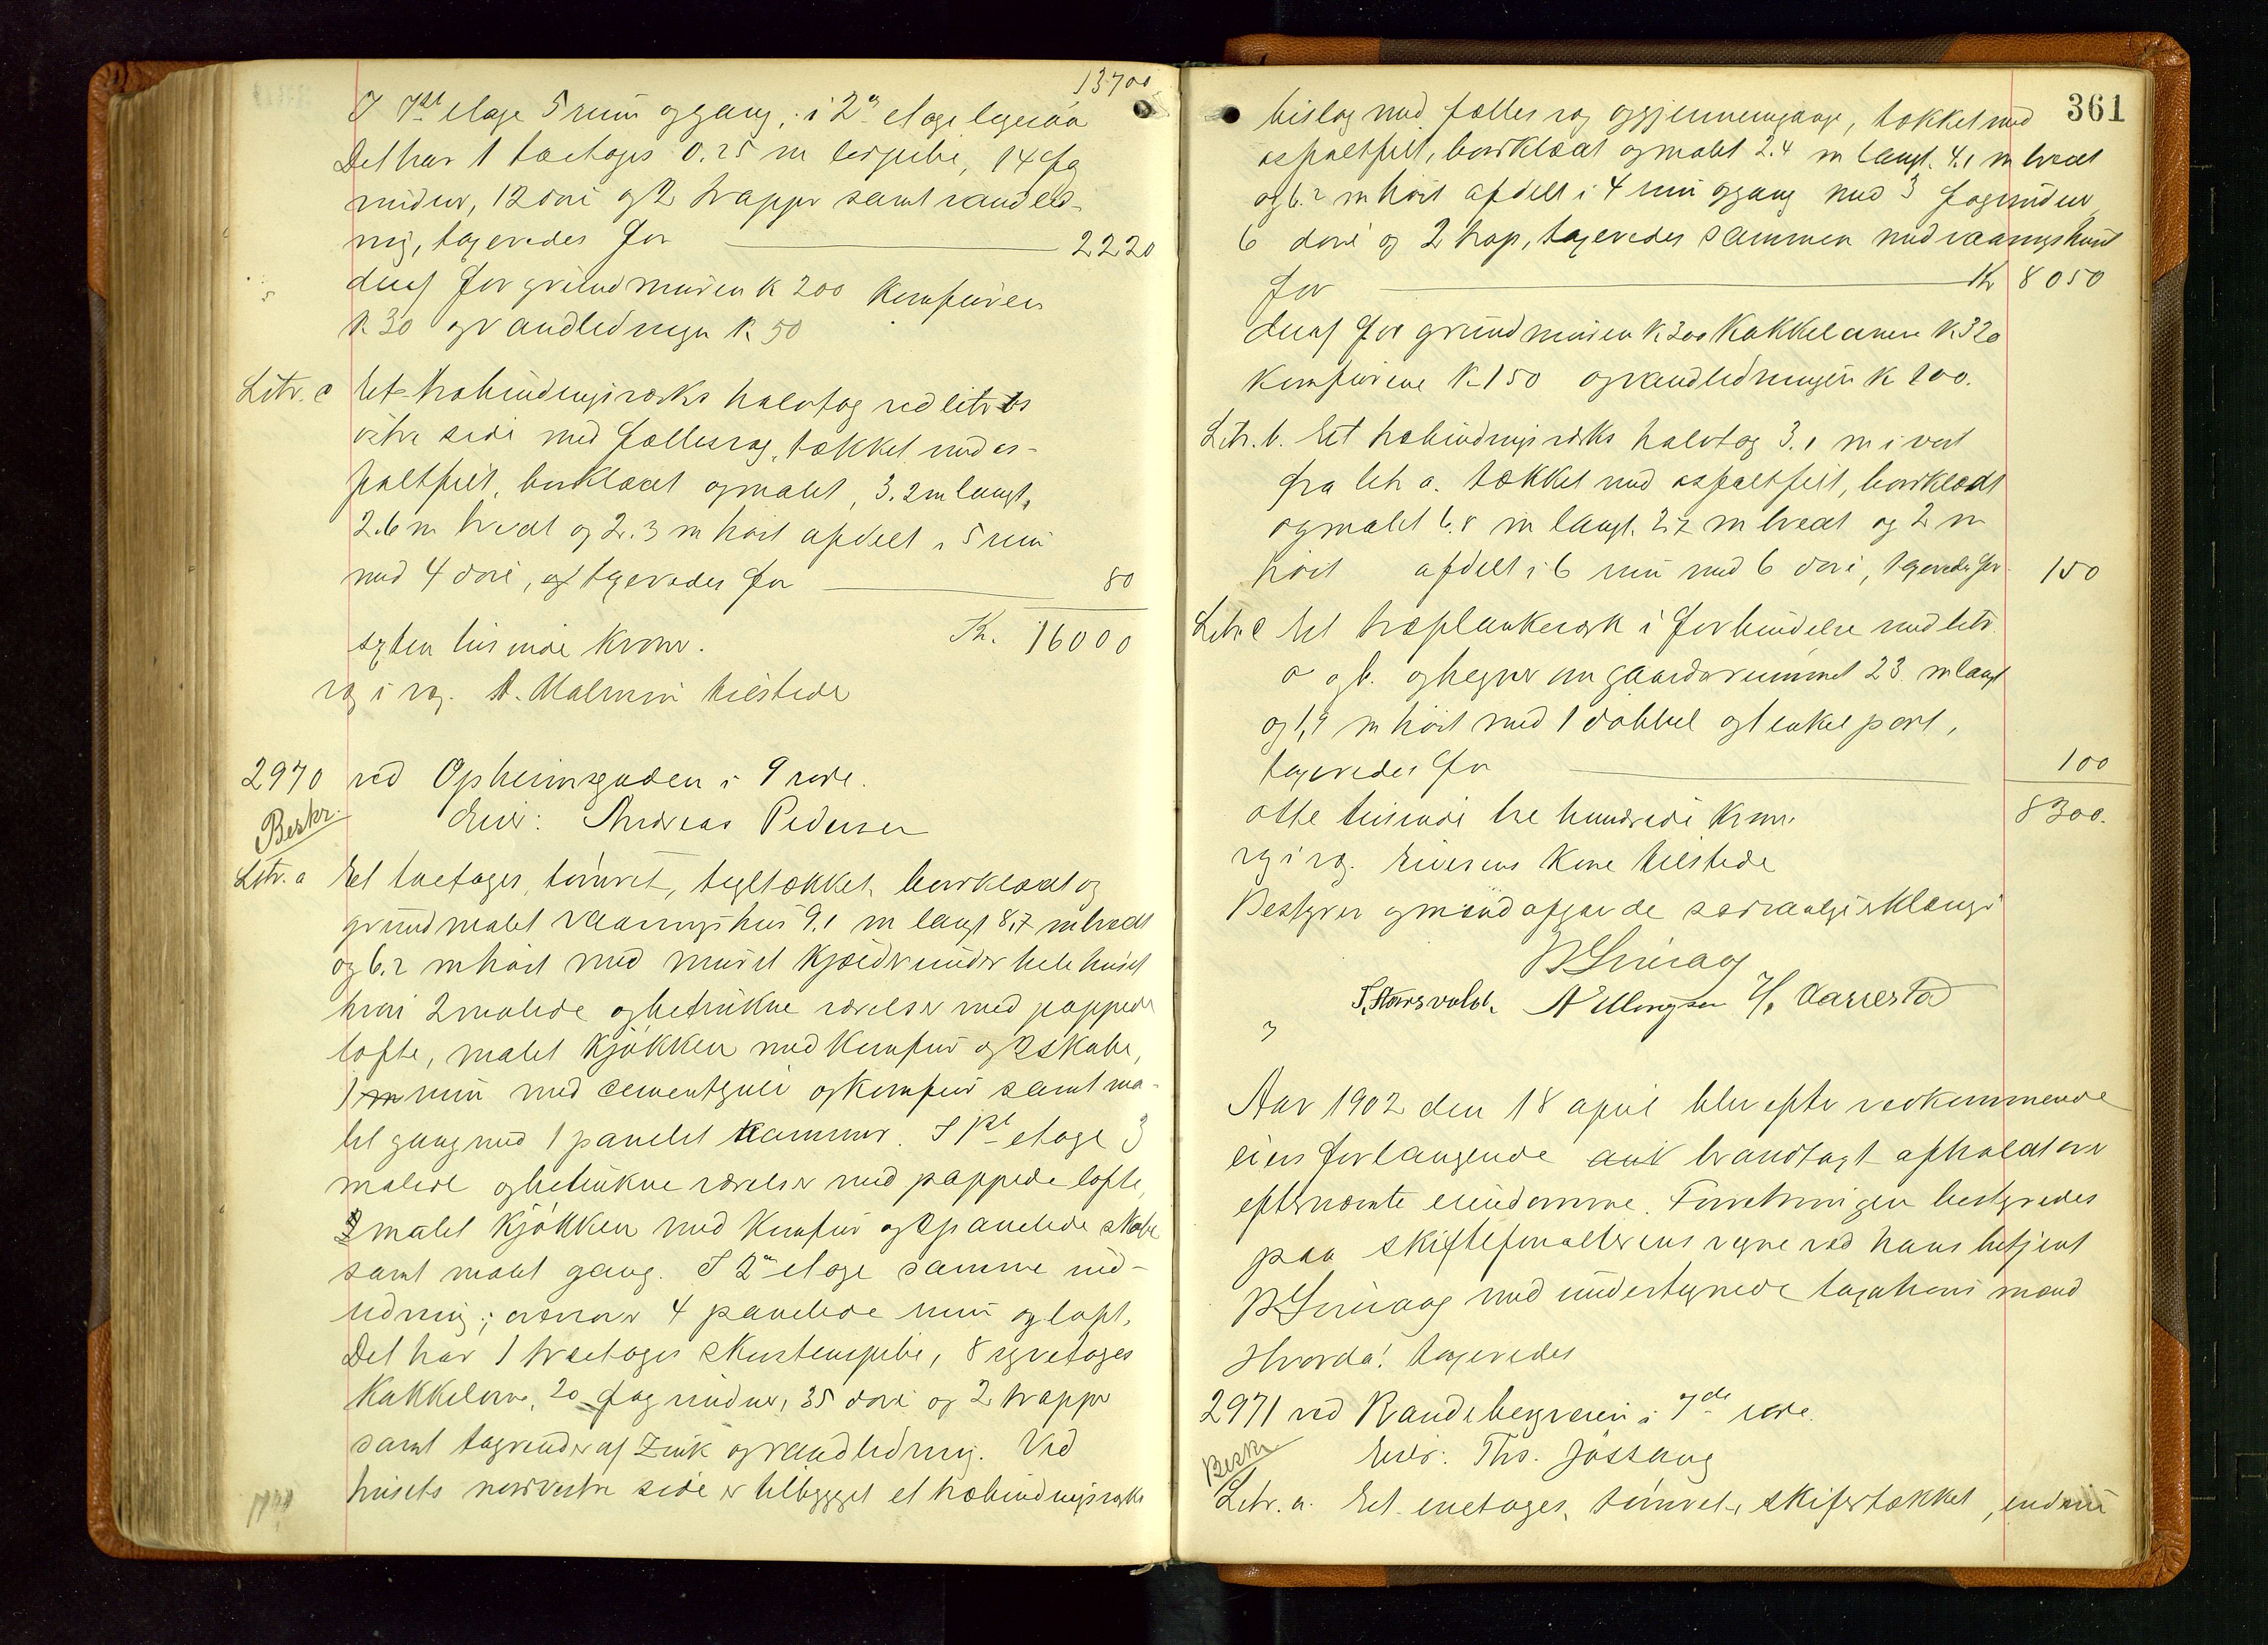 13700
I 1st etage 5 rum og gang, i 2n etage ligesaa
Det har 1 toetages 0.25 m lerpibe, 14 fag
vinduer, 12 döre og 2 trapper samt vandled-
ning, taxeredes for 2220
deraf for grundmuren k 200 komfuren
k 30 og vandledningen k 50
Litr. c Et træbindingsværks halvtag ved litr bs
östre side med fællesvæg, tækket med as-
phaltfilt, bordklædt og malet, 3.2 m langt,
2.6 m bredt og 2.3 m höit afdelt i 5 rum
med 4 döre, taxeredes for 80
sexten tusinde kroner. Kr. 16000
rg i rg. A. Malmin tilstede
2970 ved Opheimsgaden i 9 rode.
Beskr. Eier: Andreas Pedersen
Litr. a Et toetages, tömret, tegltækket, bordklædt og
grundmalet vaaningshus 9.1 m langt 8,7 m bredt
og 6.2 m höit med muret kjælder under hele huset
hvori 2 malede og betrukne værelser med pappede
lofte, malet kjökken med komfur og 2 skabe,
1 rum med cementgulv og komfur samt ma-
let gang med 1 panelet kammer. I 1st etage 3
malede og betrukne værelser med pappede lofte,
malet kjökken med komfur og 2 panelede skabe
samt malet gang. I 2n etage samme ind-
redning; ovenover 4 panelede rum og loft.
Det har 1 træetages skorstenspibe, 8 syvetages
kakkelovne, 20 fag vinduer, 35 döre og 2 trapper
samt tagrender af zink og vandledning. Ved
husets nordvestre side er tilbygget et træbindingsværks
361
bislag med fælles væg og gjennemgange, tækket med
asphaltfilt, bordklædt og malet 2.4 m langt. 4.1 m bredt
og 6.2 m höit afdelt i 4 rum og gang med 3 fag vinduer,
6 döre og 2 trap, taxeredes sammen med vaaningshuset
for Kr 8050
deraf for grundmuren k 300 kakkelovnene k 320
komfurene k 150 og vandledningen k 100.
Litr. b. Et træbindingsværks halvtag 3.1 m i vest
fra litr a. tækket med asphaltfilt, bordklædt
og malet 6.8 m langt. 2.7 m bredt og 2 m
höit afdelt i 6 rum med 6 döre, taxeredes for 150
Litr. c Et træplankeværk i forbindelse med litr.
a og b. og hegner om gaardsrummet 23 m langt
og 1,9 m höit med 1 dobbel og 1 enkel port,
taxeredes for 100
otte tusinde tre hundrede kroner 8300.
rg i rg. Eierens kone tilstede
Bestyrer og mænd afgav de sedvanlige erklæringer
A Ellingsen
Aar 1902 den 18 april blev efter vedkommende
eiers forlangende brandtaxt afholdt over
efternævnte eiendomme. Forretningen bestyredes
paa skifteforvalterens vegne ved hans betjent
med undertegnede taxations mænd
Hvorda! taxeredes
2971 ved Randebergveien i 7de rode.
Beskr Eier: Ths. Jössang
Litr. a. Et enetages, tömret, skifertækket, endnu